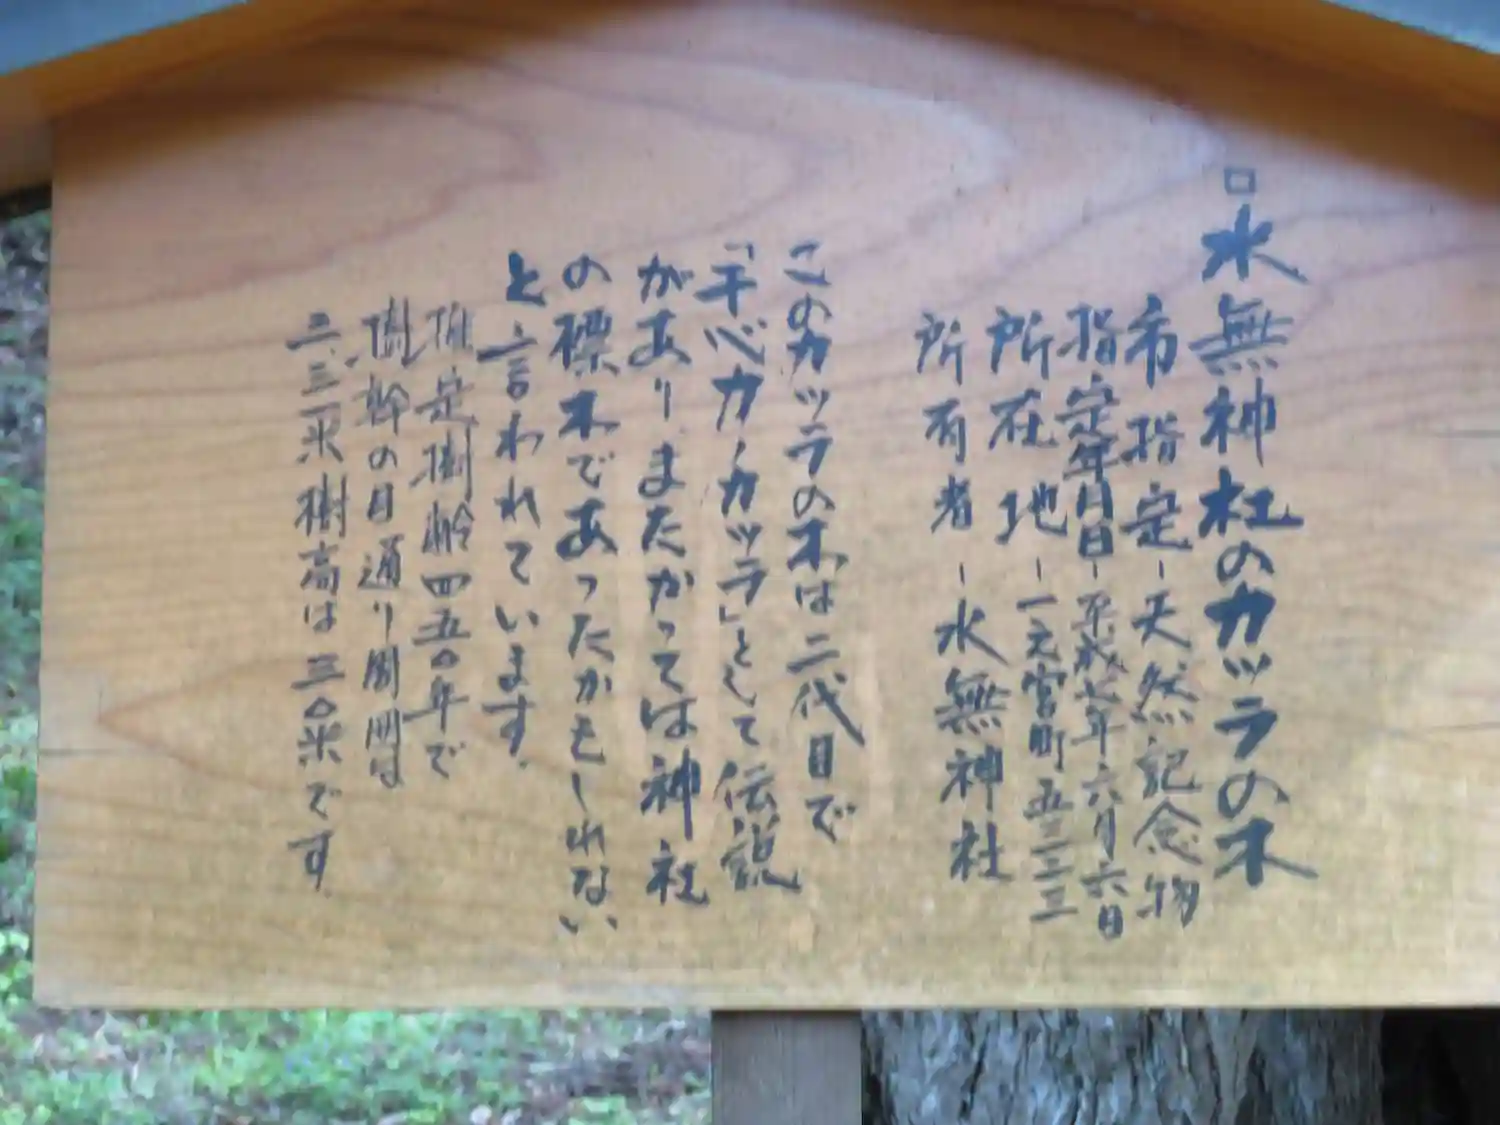 □水無神社のカツラの木
市指定-天然記念物
指定年月日-平成七年六月六日
所在地-一之宮町五三二三
所有者-水無神社
このカツラの木は二代目で
「干心カノカツラ」として伝説
があり、またかっては神社
の標木であったかもしれない
と言われています。
推定樹齢四五〇年で
樹幹の目通り周囲は
二、三米樹高は三〇米です。